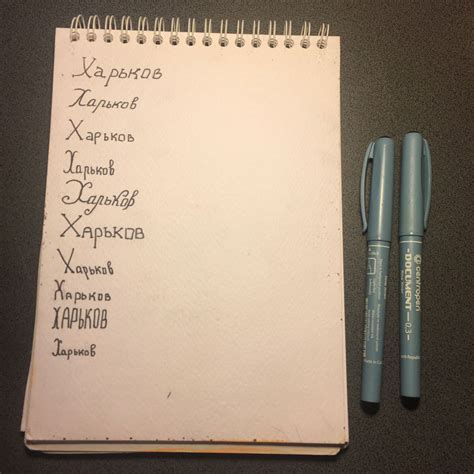 Харьков
Харьков
Харьков
Харьков
Харьков
Харьков
Харьков
Харьков
ХАРЬКОВ
Харьков
centropen
DOCUMENT
0,3